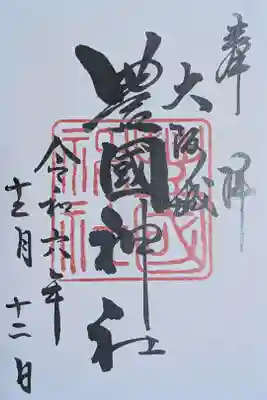 奉拝
大阪城
豊國神社
令和六年
十二月 十二日